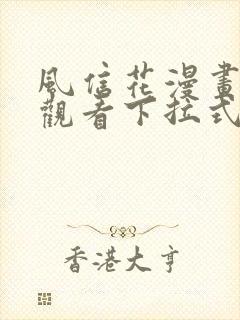 風信花漫畫
觀看下拉式
香港大亨